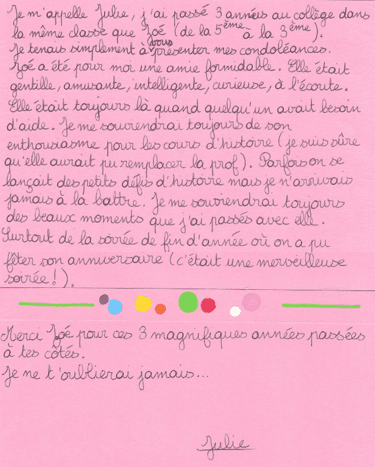 Je m'appelle Julie, j'ai passé 3 années au collège dans
la même classe que Zoé (de la 5ème à la 3ème).
Je tenais simplement à vous présenter mes condoléances.
Zoé a été pour moi une amie formidable. Elle était
gentille, amusante, intelligente, curieuse, à l'écoute.
Elle était toujours là quand quelqu'un avait besoin
d'aide. Je me souviendrai toujours de son
enthousiasme pour les cours d'histoire (je suis sûre
qu'elle aurait pu remplacer la prof). Parfois on se
lançait des petits défis d'histoire mais je n'arrivais
jamais à la battre. Je me souviendrai toujours
des beaux moments que j'ai passés avec elle.
Surtout de la soirée de fin d'année où on a pu
fêter son anniversaire (c'était une merveilleuse
soirée !).
Merci Zoé pour ces 3 magnifiques années passées
à tes côtés.
Je ne t'oublierai jamais...
Julie